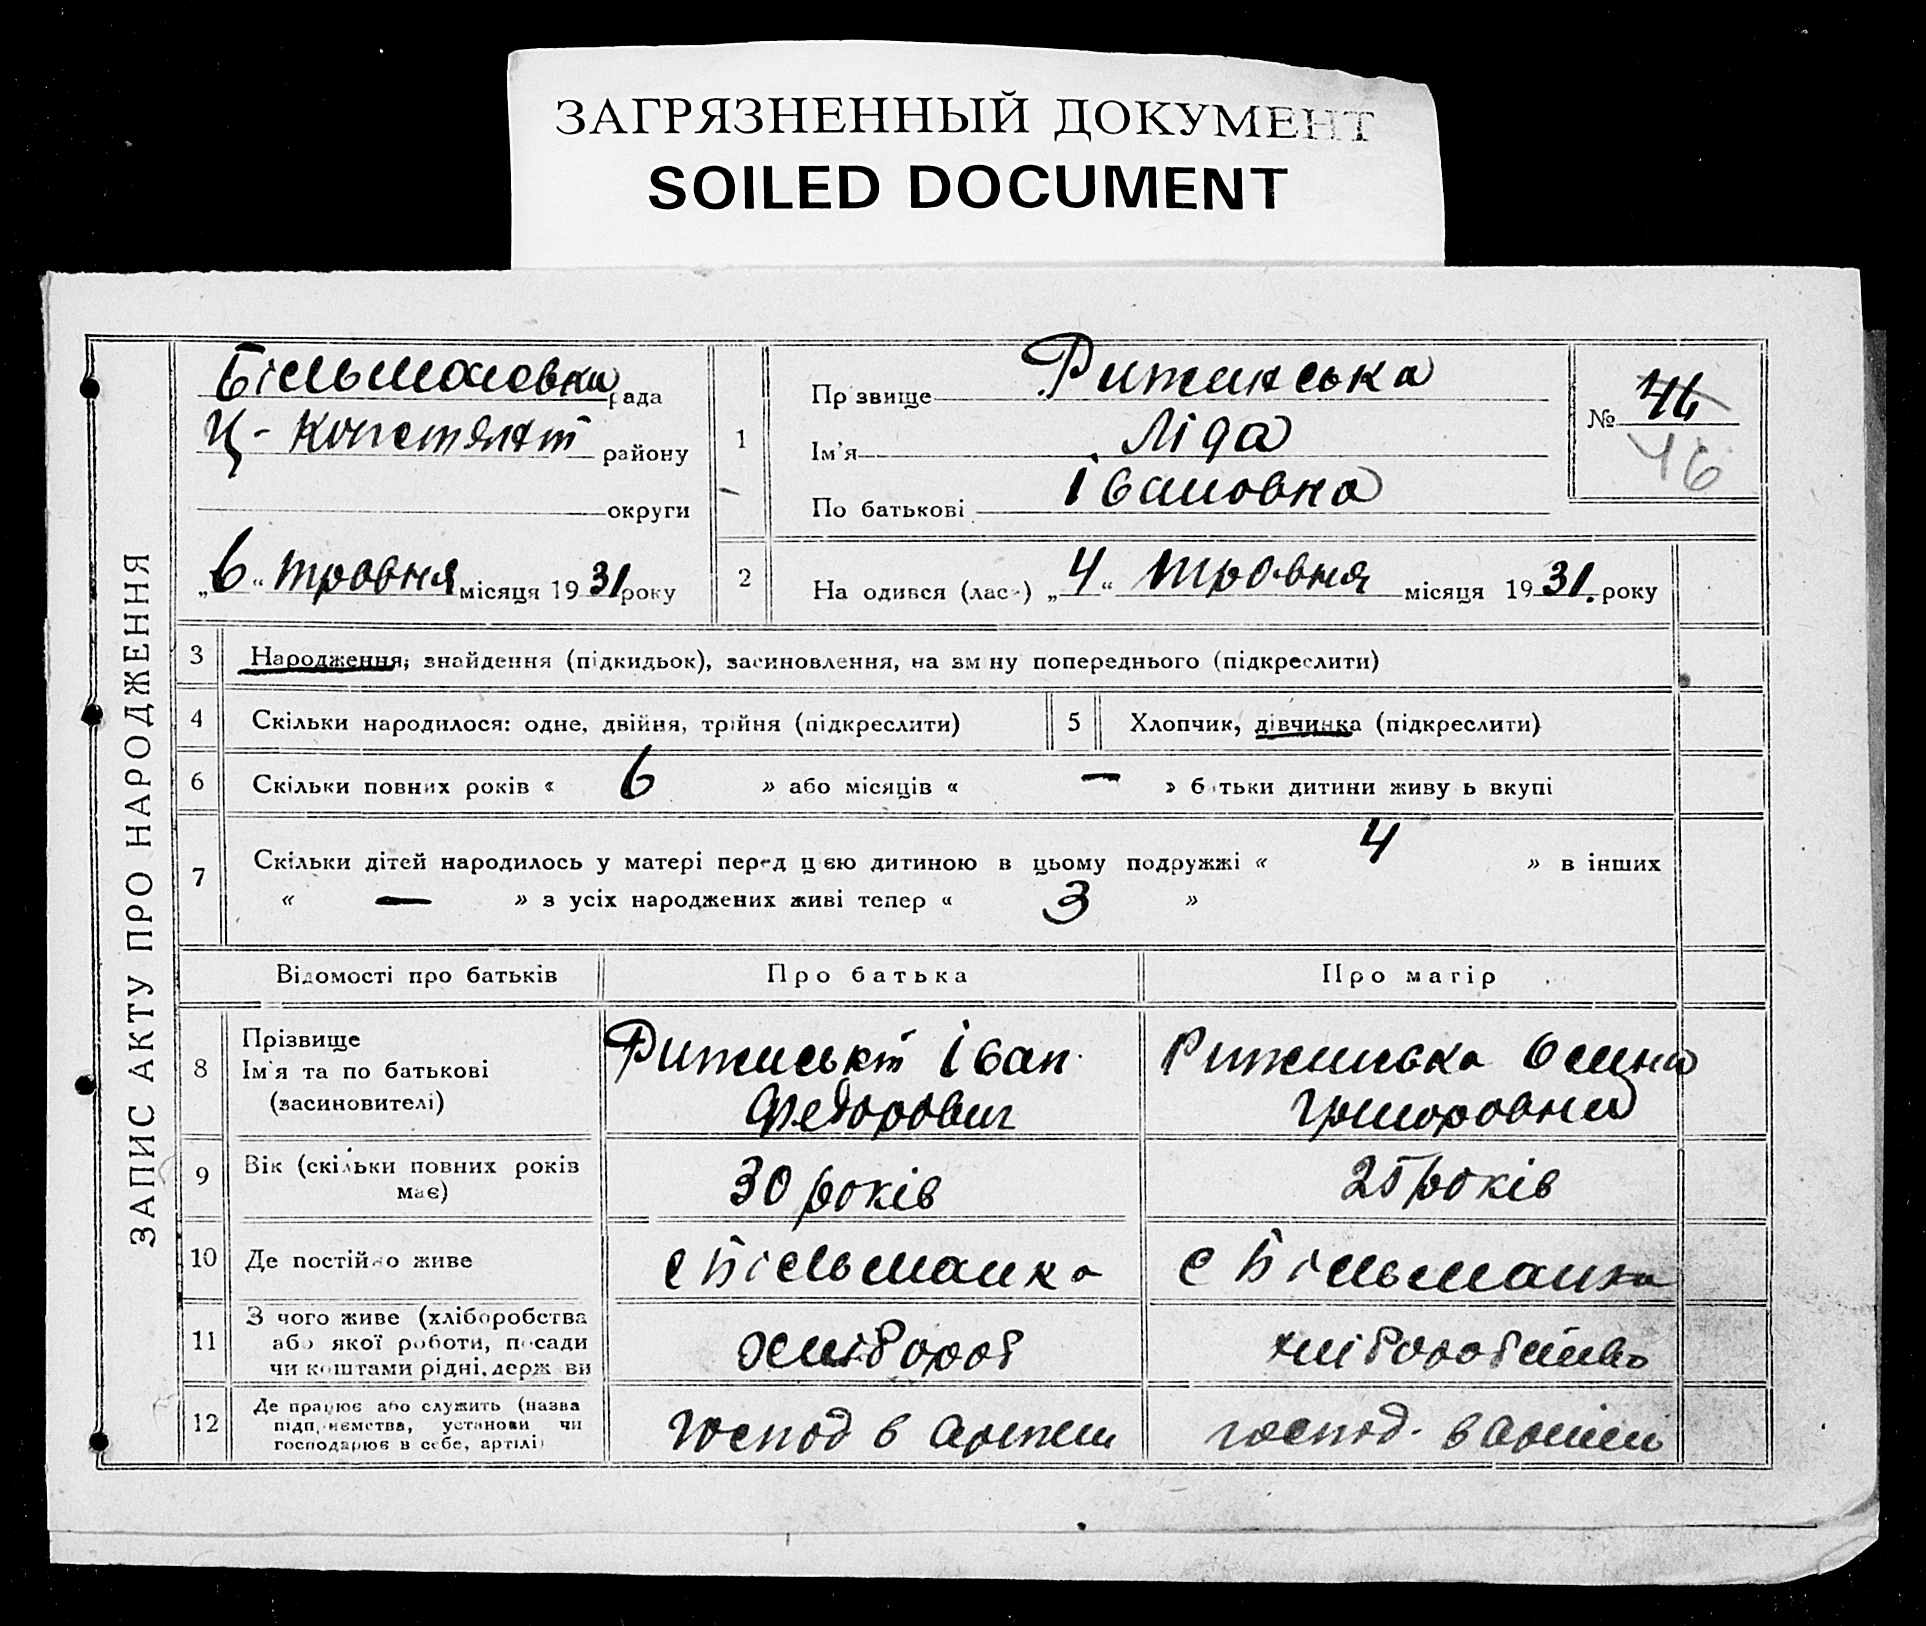 ЗАГРЯЗНЕННЫЙ ДОКУМЕНТ
SOILED DOCUMENT
ЗАПИС АКТУ ПРО НАРОДЖЕННЯ
рада
Ц-Констянт району
округи
„6“ травня місяця 1931 року
1
Прізвище Рижинська
Ім'я Ліда
По батькові Івановна
№ 46
46
2
Народився (лась) „4“ травня місяця 1931. року
3 Народження, знайдення (підкидьок), засиновлення, на зміну попереднього (підкреслити)
4 Скільки народилося: одне, двійня, трійня (підкреслити)
5 Хлопчик, дівчинка (підкреслити)
6 Скільки повних років « 6 » або місяців « — » батьки дитини живуть вкупі
7 Скільки дітей народилось у матері перед цією дитиною в цьому подружжі « 4 » в інших
« — » з усіх народжених живі тепер « 3 »
Відомості про батьків Про батька Про матір
8 Прізвище
Ім'я та по батькові
(засиновителі)
Іван
Федорович
Григоровна
9 Вік (скільки повних років
має)
30 років
25 років
10 Де постійно живе
с Більманка
с Більманка
11 З чого живе (хліборобства
або якої роботи, посади
чи коштами рідні, держави
хлібороб
хліборобство
12 Де працює або служить (назва
підприємства, установи чи
господарює в себе, артілі)
господ в артели
господ. в артели